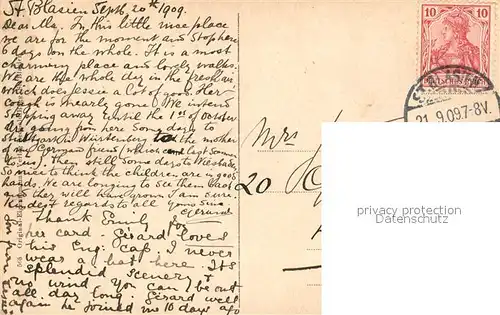 St. Blasien Sept. 20th 1909.
Dear May. In this little nice place
we are for the moment and Stophere
6 days on the whole. It is a most
charming place and lovely walks.
We are the whole day in the fresh air
which does Jessie a lot of good. Her
cough is nearly gone. We intend
stopping away until the 1st of october
are going from here some days to
Stuttgart in Würtemberg to the mother
of my German friend (which last
to us). Then still some days to Wiesbaden
So nice to think the children are in good
hands. We are longing to see them back
and they will have grown I am sure.
Kindest regards to all yours sinc.
Thank Emily for
her card. Gérard loves
his Eng. cap. I never
wear a hat here. Its
splendid scenery &
no wind. You can be out
all day long. Gérard well
again he joined me 10 days ago
Mrs
20
10 10
DEUTSCHES REICH
ST. BLASIEN
21.9.09.7-8V.
privacy protection
Datenschutz